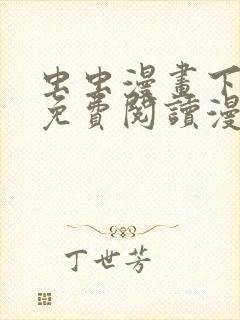 虫虫漫畫下
免費閱讀漫
丁世芳